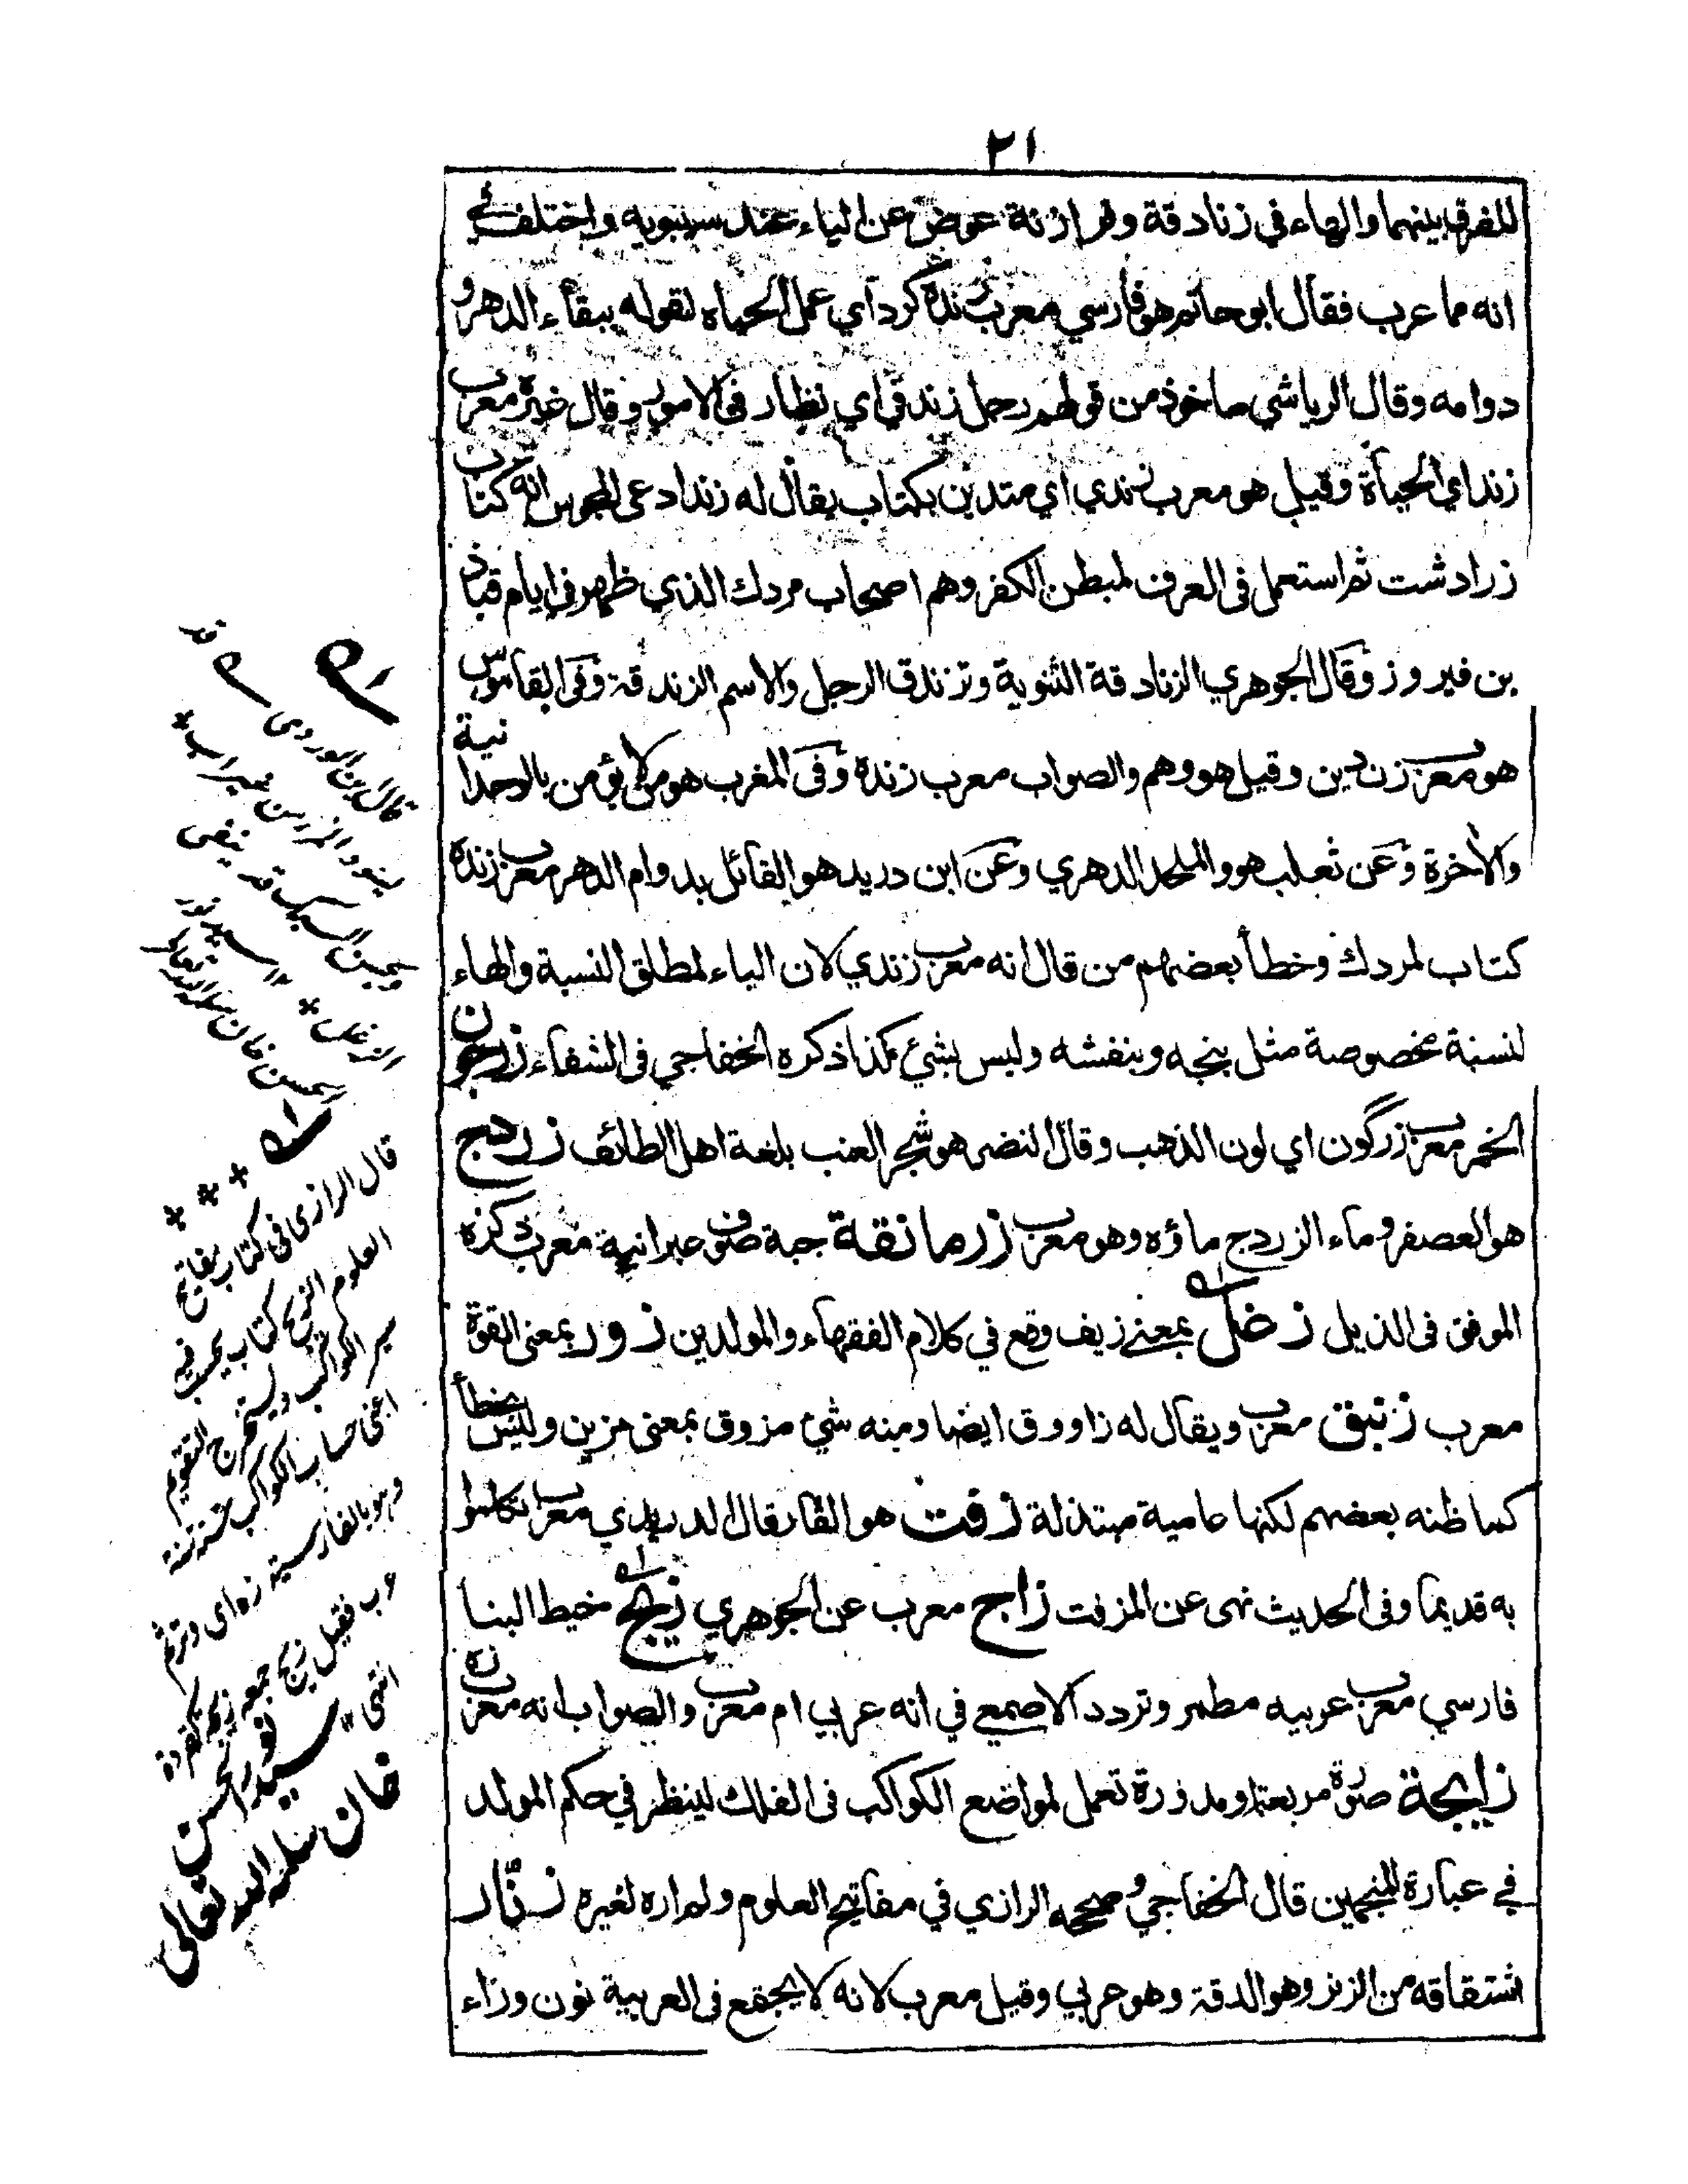 ٢١
للفرق بينهما والهاء في زنادقة وفرازنة عوض عن الياء عند سيبويه واختلف في
انه مما عرب فقال ابو حاتم هو فارسي معرب زنده كرد اي عمل الحياة لقوله ببقاء الدهر و
دوامه وقال الرياشي ماخوذ من قولهم رجل زندقي اي نظار في الامور وقال غيره معرب
زنداي الحياة وقيل هو معرب زندي اي متدين بكتاب يقال له زند ادعى المجوس انه كتاب
زرادشت ثم استعمل في العرف لمبطن الكفر وهم اصحاب مردك الذي ظهر في ايام قباذ
بن فيروز وقال الجوهري الزنادقة الثنوية وتزندق الرجل والاسم الزندقة وفي القاموس
هو معرب زن دين وقيل هو وهم والصواب معرب زنده وفي المغرب هو من لا يؤمن بالوحدانية
والاخرة وعن ثعلب هو والملحد الدهري وعن ابن دريد هو القائل بدوام الدهر معرب زنده
كتاب لمردك وخطأ بعضهم من قال انه معرب زندي لان الياء لمطلق النسبة والهاء
لنسبة مخصوصة مثل بنجه وبنفشه وليس بشيء كذا ذكره الخفاجي في الشفاء زرجون
الخمر معرب زرگون اي لون الذهب وقال النضر هو شجر العنب بلغة اهل الطائف زردج
هو العصفر وماء الزردج ماؤه وهو معرب زرمانقة جبة صوف عبرانية معرب ذكره
الموفق في الذيل زغل بمعنے زيف وقع في كلام الفقهاء والمولدين زور بمعنى القوة
معرب زئبق معرب ويقال له زاووق ايضا ومنه شيء مزوق بمعنى مزين وليس بخطأ
كما ظنه بعضهم لكنها عامية مبتذلة زفت هو القار قال الدريدي معرب تكلموا
به قديما وفي الحديث نهى عن المزفت زاج معرب عن الجوهري زيج خيط البنا
فارسي معرب عربيه مطمر وتردد الاصمعي في انه عربي ام معرب والصواب انه معرب زه
زايجة صورة مربعة او مدورة تعمل لمواضع الكواكب في الفلك لينظر في حكم المولد
في عبارة المنجمين قال الخفاجي وصححه الرازي في مفاتيح العلوم ولم اره لغيره زنار
اشتقاقه من الزنر وهو الدقة وهو عربي وقيل معرب لانه لا يجتمع في العربية نون وراء
قال الرازى فى كتاب مفاتيح
العلوم الزيج كتاب يحسب فيه
سير الكواكب ويستخرج التقويم
اعنى حساب الكواكب سنة سنة
وهو بالفارسية زه اى وتر ثم
عرب فقيل زيج جمعه زيجة كقردة
انتهى سيد نور الحسن
خان سلمه الله تعالى